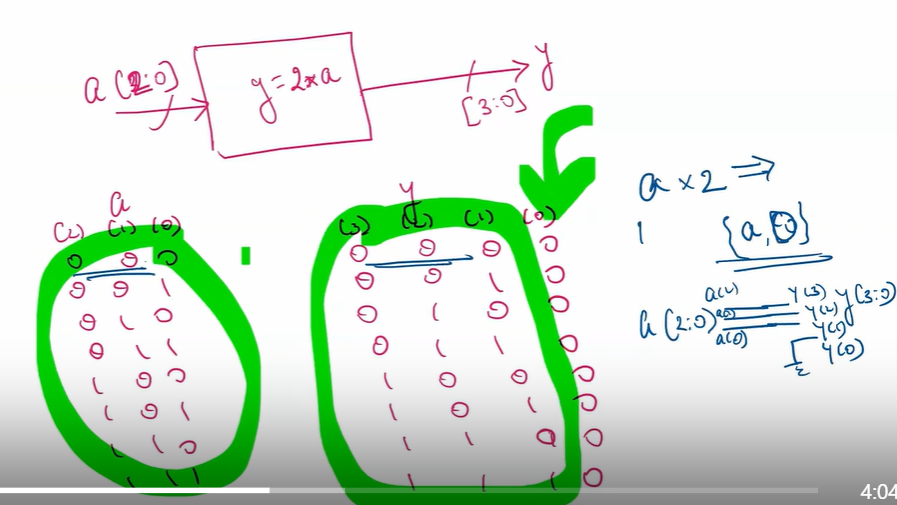 a [2:0]
y = 2*a
[3:0]
y
a
(2) (1) (0)
0 0 0
0 0 1
0 1 0
0 1 1
1 0 0
1 0 1
1 1 0
1 1 1
y
(3) (2) (1) (0)
0 0 0 0
0 0 1 0
0 1 0 0
0 1 1 0
1 0 0 0
1 0 1 0
1 1 0 0
1 1 1 0
a × 2 ⇒
{a, 0}
a(2) y(3) y(3:0)
a(2:0) a(1) y(2)
a(0) y(1)
y(0)
4:04